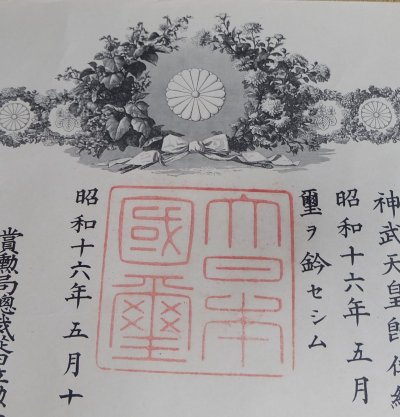 神武天皇即位紀
昭和十六年五月
璽ヲ鈐セシム
大日本
國璽
昭和十六年五月十
賞勳局總裁